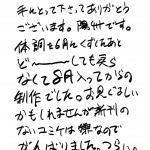 手にとって下さってありがとう
ございます。陽州です。
体調を6月くずしたあと
ど〜〜しても戻ら
なくて8月入ってからの
制作でした。お見ぐるしい
かもしれませんが新刊の
ないコミケは嫌なので
がんばりました。つらい。